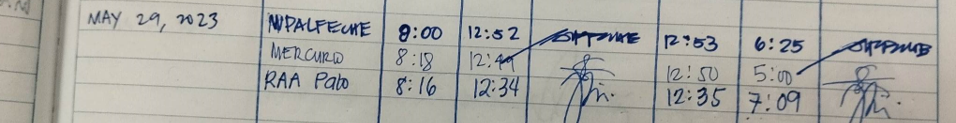 MAY 29, 2023 8:00 12:52 12:53 6:25
MERCURIO 8:18 12:49 12:50 5:00
RAA Pabo 8:16 12:34 12:35 7:09